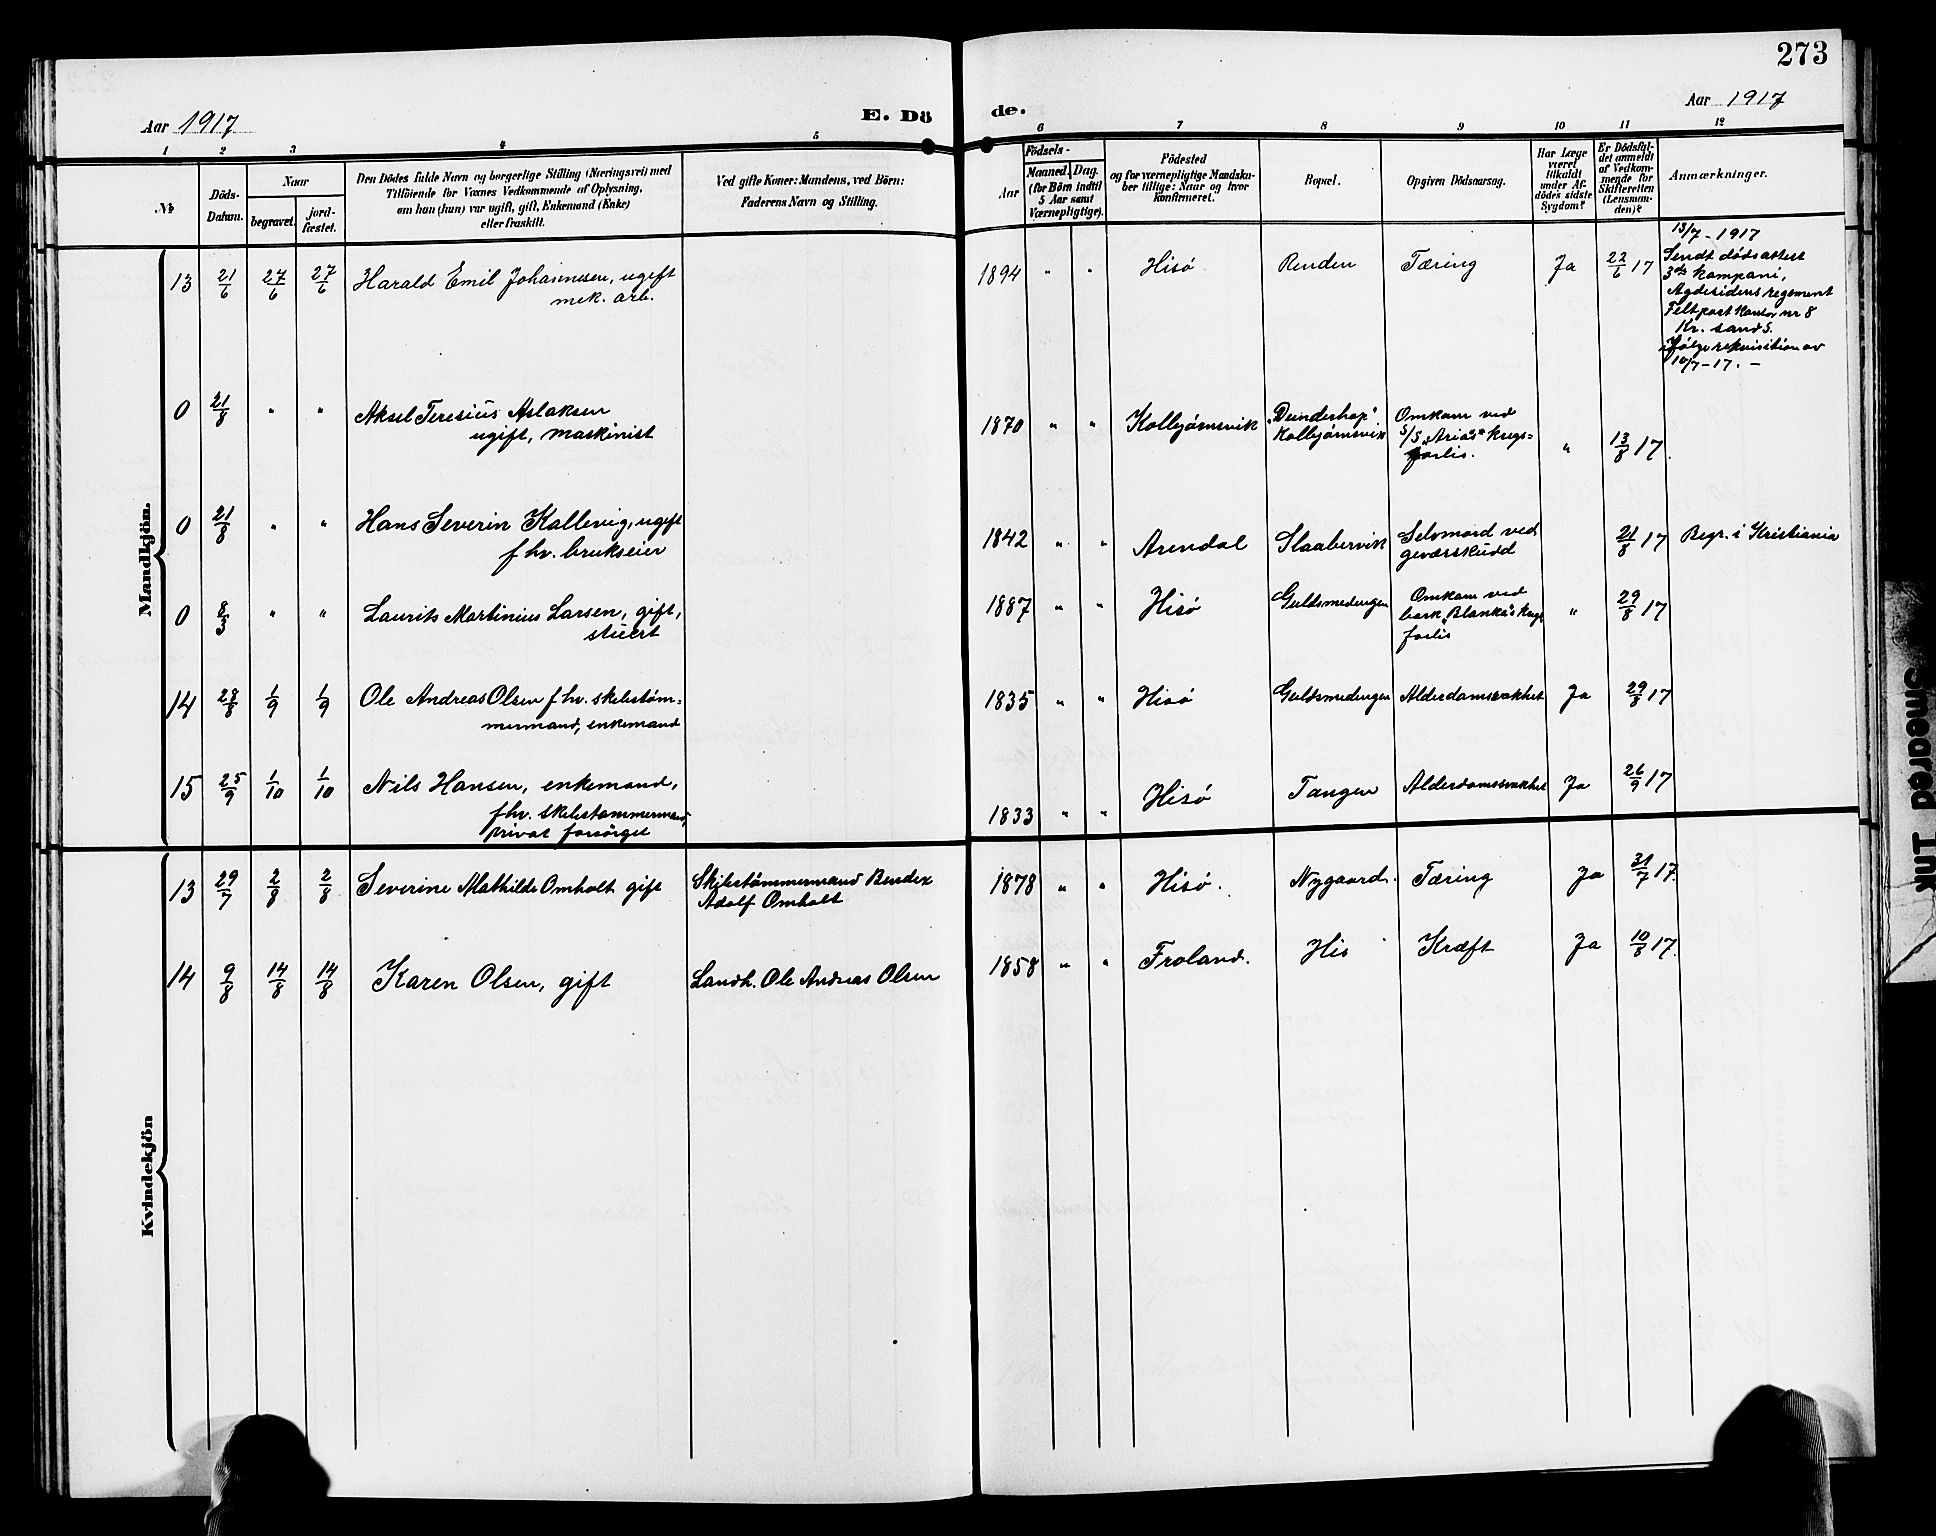 273
Aar 1917
E. Dö
de.
Aar 1917
1 2 3 4 5
6 7 8 9 10 11 12
№
Döds-
Datum.
Naar
begravet.
jord-
fæstet.
Den Dödes fulde Navn og borgerlige Stilling (Næringsvei) med
Tilföiende for Voxnes Vedkommende af Oplysning,
om han (hun) var ugift, gift, Enkemand (Enke)
eller fraskilt.
Ved gifte Koner: Mandens, ved Börn:
Faderens Navn og Stilling.
Födsels-
Aar
Maaned. Dag.
(for Börn indtil
5 Aar samt
Værnepligtige).
Födested
og for værnepligtige Mandska-
ber tillige: Naar og hvor
konfirmeret.
Bopæl.
Opgiven Dödsaarsag.
Har Læge
været
tilkaldt
under Af-
dödes sidste
Sygdom?
Er Dödsfal-
det anmeldt
af Vedkom-
mende for
Skifteretten
(Lensman-
den)?
Anmærkninger.
Mandkjön.
13 21/6 27/6 27/6 Harald Emil Johannesen, ugift
mek. arb.
1894 " " Hisö Renden Tæring Ja 22/6 17
13/7 - 1917
Sendt dödsattest
3die kompani,
Agdesidens regement
Feltpost kontor nr 8
Kr. sand S.
ifölge rekvisition av
10/7 - 17. -
0 21/8 " " Aksel Teresius Aslaksen
ugift, maskinist
1870 " " Kolbjørnsvik
Kolbjørnsvik
Omkom ved
S/S "Arias" krigs=
forlis.
" 13/8 17.
0 21/8 " " Hans Severin Kallevig, ugift
fhv. brukseier
1842 " " Arendal Slaabervik Selvmord ved
geværskudd
21/8 17 Begr. i Kristiania
0 8/3 " " Laurits Martinius Larsen, gift,
stuert
1887 " " Hisö Guldsmedengen Omkom ved
bark "Blanka's" krigs
forlis
" 29/8 17
14 28/8 1/9 1/9 Ole Andreas Olsen fhv. skibstøm=
mermand, enkemand
1835 " " Hisö Guldsmedengen Alderdomssvakhet Ja 29/8 17
15 25/9 1/10 1/10 Nils Hansen, enkemand,
fhv. skibstømmermand,
privat forsörget
1833 " " Hisö Tangen Alderdomssvakhet Ja 26/9 17
Kvindekjön
13 29/7 2/8 2/8 Severine Mathilde Omholt gift
Skibstömmermand Bendix
Adolf Omholt
1878 " " Hisö. Nygaard. Tæring Ja 31/7 17.
14 9/8 14/8 14/8 Karen Olsen, gift
Landh. Ole Andreas Olsen
1858 " " Froland. His Kræft Ja 10/8 17.
Smeared Ink